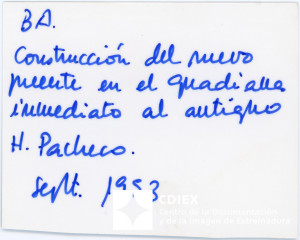 BA.
Construcción del nuevo
puente en el guadiana
inmediato al antiguo
H. Pacheco.
Sept. 1953
CDIEX